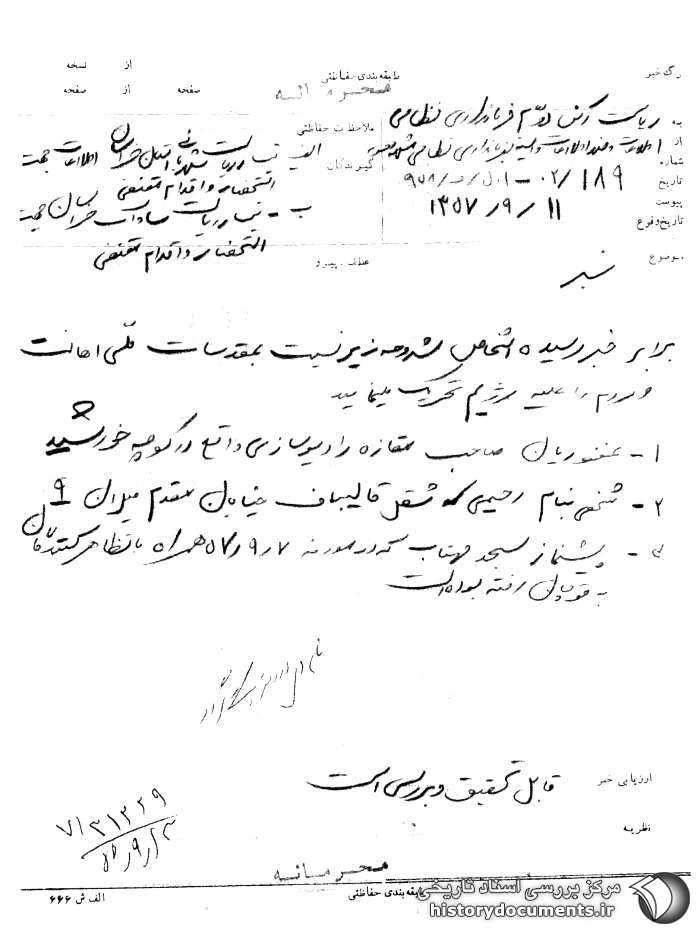 برگ خبر
طبقه بندی حفاظتی
محرمانه
از نسخه
صفحه از صفحه
به ریاست رکن دوم فرمانداری نظامی
از اطلاعات و ضد اطلاعات فرمانداری نظامی مشهد
شماره ۱۸۹/۰۲-۵۰۱
تاریخ ۱۳۵۷/۹/۱۱
پیوست
تاریخ وقوع
ملاحظات حفاظتی
گیرندگان
الف تیمسار ریاست شهربانی استان خراسان اطلاعات جهت
استحضار و اقدام مقتضی
ب - تیمسار ریاست ساواک خراسان جهت
استحضار و اقدام مقتضی
موضوع خبر
عطف ـ پیرو
برابر خبر رسیده اشخاص مشروحه زیر نسبت بمقدسات ملی اهانت
و مردم را علیه رژیم تحریک مینمایند
۱- غفوریان صاحب مغازه رادیوسازی واقع در کوچه خورشید
۲- شخصی بنام رحیمی که شغل قالیباف خیابان مقدم میلان ۹
۳- پیشنماز مسجد مهتاب که در مورخه ۵۷/۹/۷ همراه با تظاهر کنندگان
به قوچان رفته بوده است
ارزیابی خبر قابل تحقیق و بررسی است
نظریه
۷/۳۱۲۲۹
محرمانه
طبقه بندی حفاظتی
الف ش ۶۶۶
مرکز بررسی اسناد تاریخی
historydocuments.ir